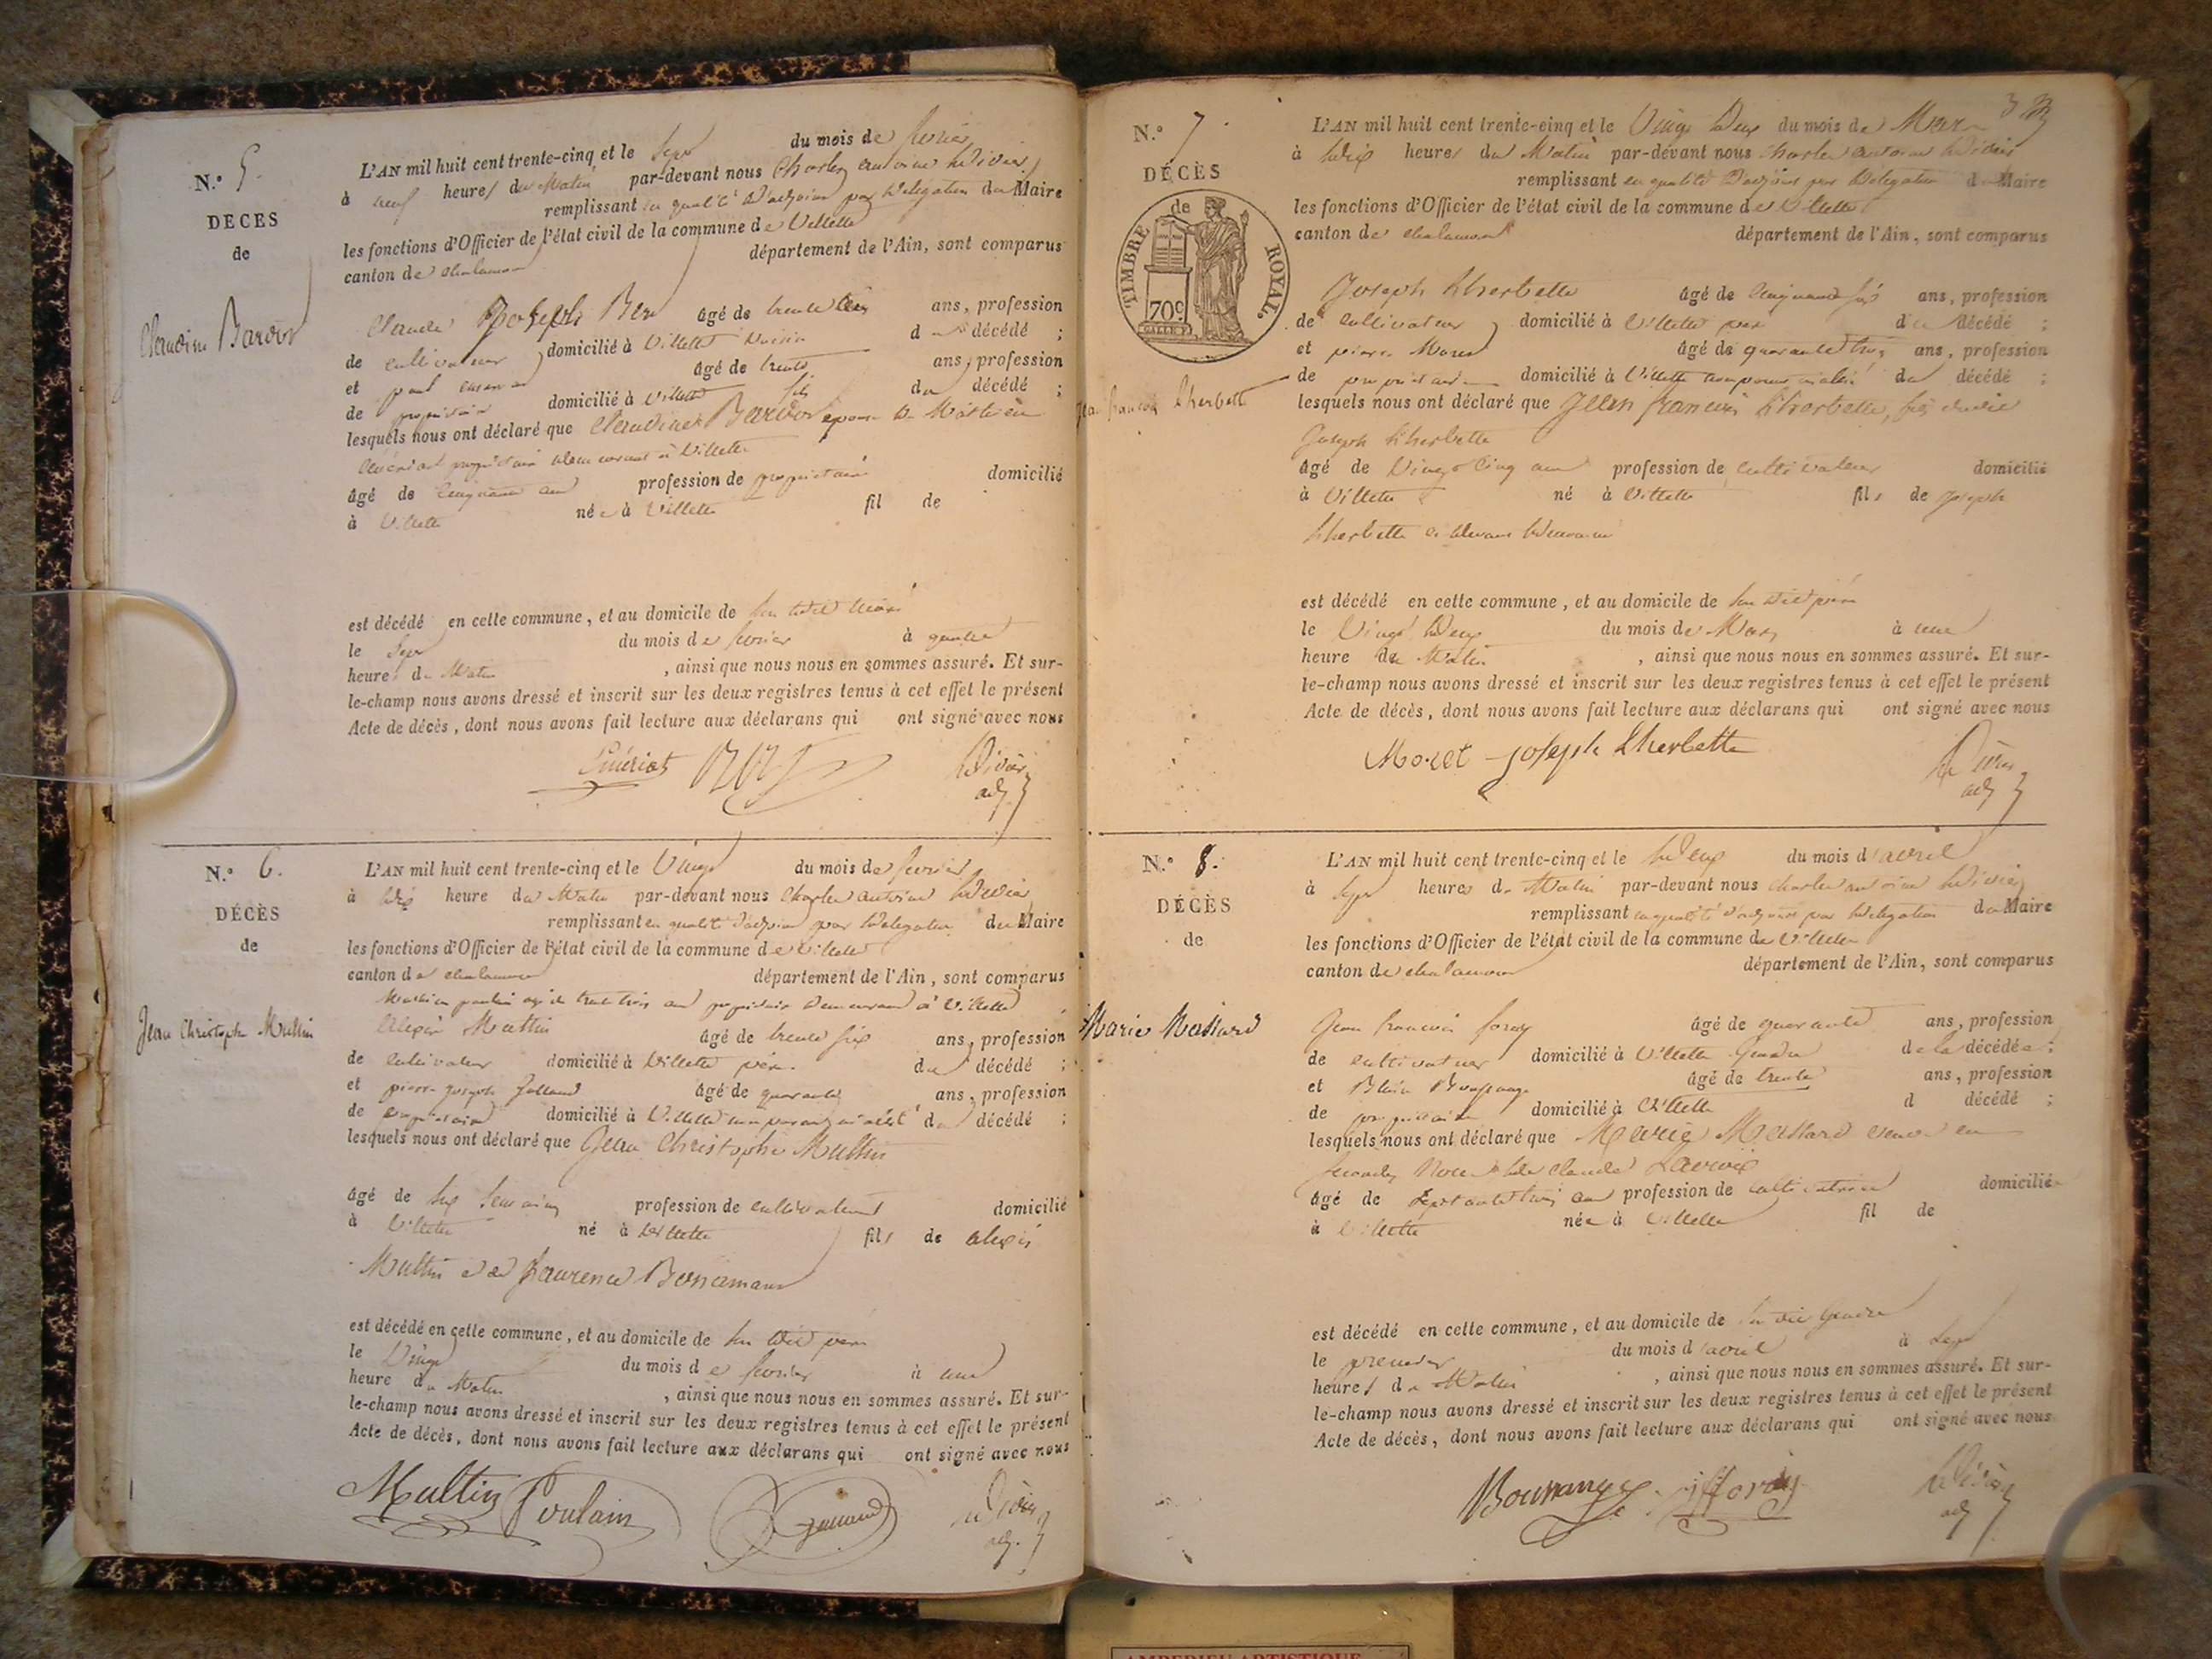 N.° 5.
DECES
de
Claudine Bardor
L'AN mil huit cent trente-cinq et le sept du mois de fevrier
à neuf heures du Matin par-devant nous Charles antoine
remplissant en qualité d'adjoint par délégation du Maire
les fonctions d'Officier de l'état civil de la commune de Villette
canton de chalamont département de l'Ain, sont comparus
Claude Joseph Rey âgé de trente ans, profession
de cultivateur domicilié à Villette voisin d décédé ;
et paul âgé de trente ans, profession
de propriétaire domicilié à Villette fils du décédé ;
lesquels nous ont déclaré que Claudine épouse de Mathieu
propriétaire demeurant à Villette
âgé de cinquante ans profession de propriétaire domicilié
à Villette née à Villette fil de
est décédé en cette commune, et au domicile de son dit mari
le sept du mois de fevrier à quatre
heures du Matin , ainsi que nous nous en sommes assuré. Et sur-
le-champ nous avons dressé et inscrit sur les deux registres tenus à cet effet le présent
Acte de décès, dont nous avons fait lecture aux déclarans qui ont signé avec nous
adj
N.° 6.
DÉCÈS
de
Jean Christophe Multin
L'AN mil huit cent trente-cinq et le Vingt du mois de fevrier
à dix heure du Matin par-devant nous Charles antoine
remplissant en qualité d'adjoint par délégation du Maire
les fonctions d'Officier de l'état civil de la commune de Villette
canton de chalamont département de l'Ain, sont comparus
agé de trente trois ans propriétaire demeurant à Villette
Alexis Multin âgé de trente six ans, profession
de cultivateur domicilié à Villette père du décédé ;
et pierre joseph âgé de quarante ans, profession
de propriétaire domicilié à Villette non parent ni allié du décédé ;
lesquels nous ont déclaré que Jean Christophe Multin
âgé de six semaines profession de cultivateur domicilié
à Villette né à Villette fils de alexis
Multin et de Laurence
est décédé en cette commune, et au domicile de son dit père
le Vingt du mois de fevrier à une
heure du Matin , ainsi que nous nous en sommes assuré. Et sur-
le-champ nous avons dressé et inscrit sur les deux registres tenus à cet effet le présent
Acte de décès, dont nous avons fait lecture aux déclarans qui ont signé avec nous
Multin Poulain
adj.
3
N.° 7.
DÉCÈS
de
TIMBRE ROYAL.
70c
jean francois Lherbette
L'AN mil huit cent trente-cinq et le Vingt deux du mois de Mars
à dix heures du Matin par-devant nous Charles antoine
remplissant en qualité d'adjoint par délégation du Maire
les fonctions d'Officier de l'état civil de la commune de Villette
canton de chalamont département de l'Ain, sont comparus
Joseph Lherbette âgé de cinquante six ans, profession
de cultivateur domicilié à Villette père du décédé ;
et pierre Moret âgé de quarante trois ans, profession
de propriétaire domicilié à Villette non parent ni allié du décédé ;
lesquels nous ont déclaré que Jean francois Lherbette, fils dudit
Joseph Lherbette
âgé de Vingt Cinq ans profession de cultivateur domicilié
à Villette né à Villette fils de joseph
Lherbette
est décédé en cette commune, et au domicile de son dit père
le Vingt deux du mois de Mars à une
heure du Matin , ainsi que nous nous en sommes assuré. Et sur-
le-champ nous avons dressé et inscrit sur les deux registres tenus à cet effet le présent
Acte de décès, dont nous avons fait lecture aux déclarans qui ont signé avec nous
Moret joseph Lherbette
adj
N.° 8.
DÉCÈS
de
Marie Massard
L'AN mil huit cent trente-cinq et le deux du mois d'avril
à sept heures du Matin par-devant nous Charles antoine
remplissant en qualité d'adjoint par délégation du Maire
les fonctions d'Officier de l'état civil de la commune de Villette
canton de chalamont département de l'Ain, sont comparus
Jean francois foray âgé de quarante ans, profession
de cultivateur domicilié à Villette Gendre de la décédée ;
et âgé de trente ans, profession
de propriétaire domicilié à Villette d décédé ;
lesquels nous ont déclaré que Marie Massard veuve en
secondes Noces de claude
âgé de septante trois ans profession de cultivatrice domiciliée
à Villette née à Villette fil de
est décédé en cette commune, et au domicile de son dit Gendre
le premier du mois d'avril à sept
heures du Matin , ainsi que nous nous en sommes assuré. Et sur-
le-champ nous avons dressé et inscrit sur les deux registres tenus à cet effet le présent
Acte de décès, dont nous avons fait lecture aux déclarans qui ont signé avec nous
adj
AMBERIEU ARTISTIQUE